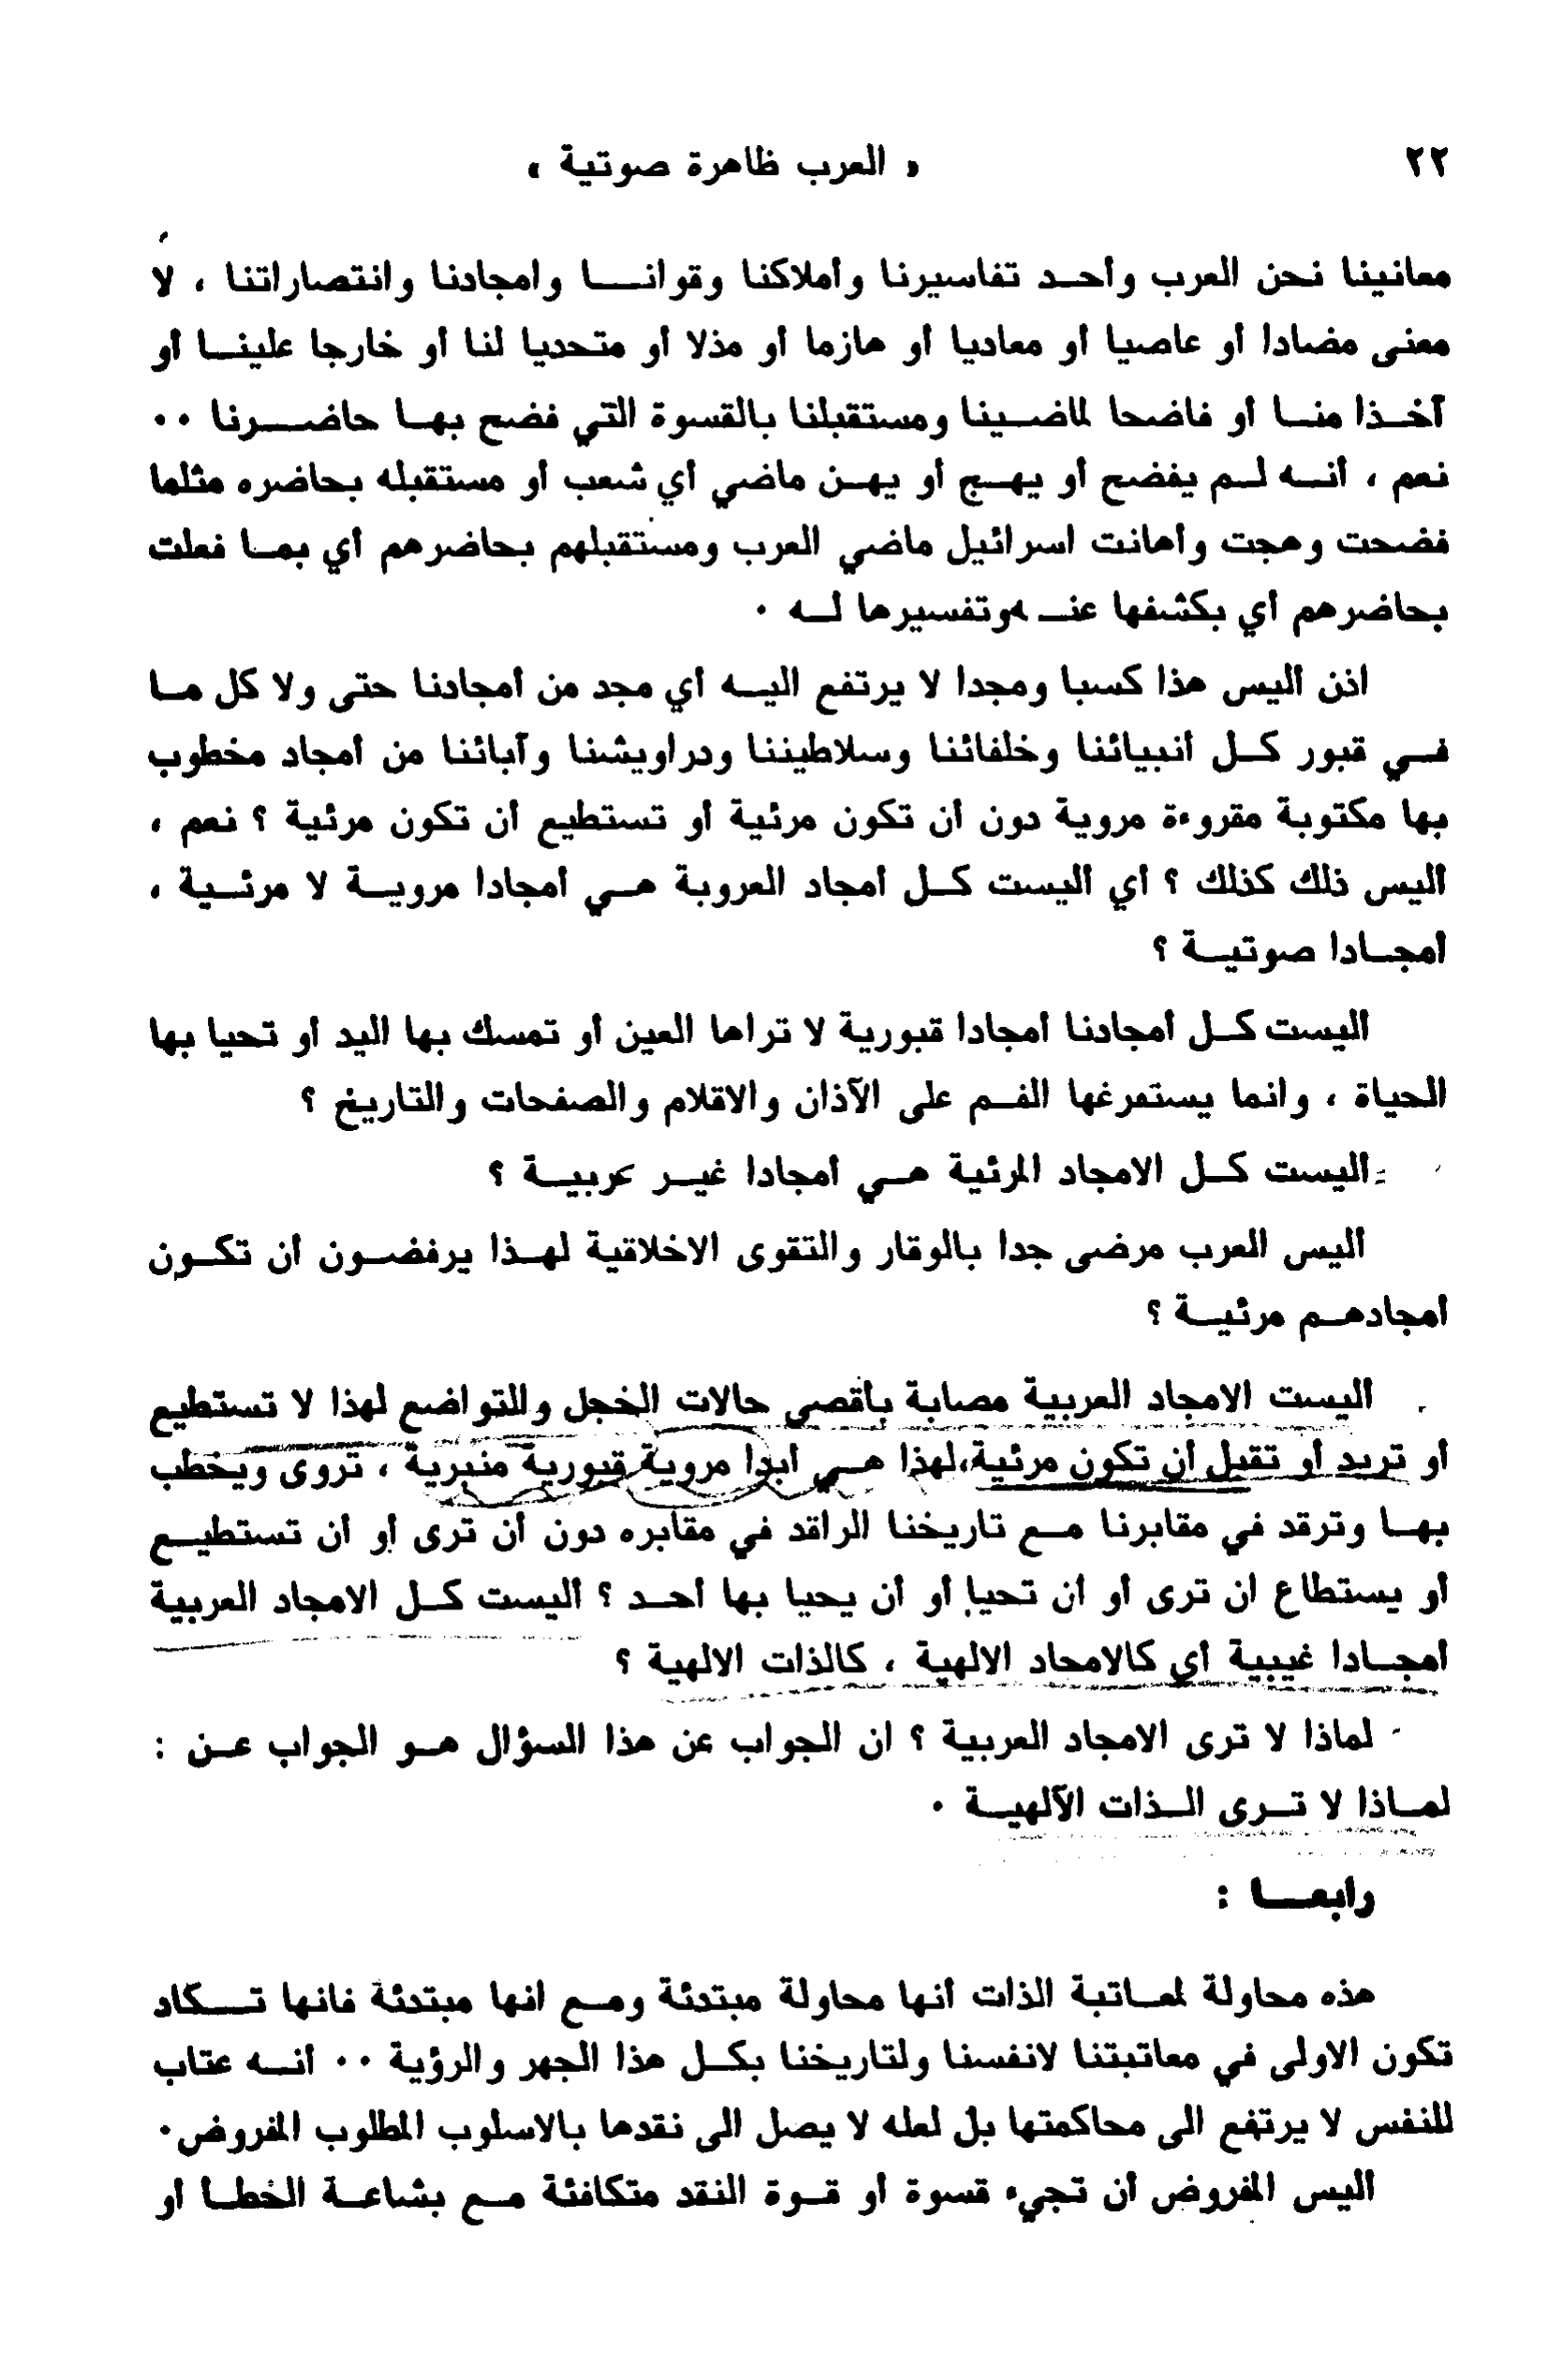 ٢٢
« العرب ظاهرة صوتية »
معانينا نحن العرب وأحد تفاسيرنا وأملاكنا وقوانا وامجادنا وانتصاراتنا ، لا
معنى مضادا أو عاصيا أو معاديا أو هازما أو مذلا أو متحديا لنا أو خارجا علينا أو
آخذا منا أو فاضحا لماضينا ومستقبلنا بالقسوة التي فضح بها حاضرنا ٠٠
نعم ، أنه لم يفضح أو يهج أو يهن ماضي أي شعب أو مستقبله بحاضره مثلما
فضحت وهجت وأهانت اسرائيل ماضي العرب ومستقبلهم بحاضرهم أي بما فعلت
بحاضرهم أي بكشفها عنه وتفسيرها له ٠
اذن أليس هذا كسبا ومجدا لا يرتفع اليه أي مجد من أمجادنا حتى ولا كل ما
في قبور كل أنبيائنا وخلفائنا وسلاطيننا ودراويشنا وآبائنا من أمجاد مخطوب
بها مكتوبة مقروءة مروية دون أن تكون مرئية أو تستطيع أن تكون مرئية ؟ نعم ،
أليس ذلك كذلك ؟ أي أليست كل أمجاد العروبة هي أمجادا مروية لا مرئية ،
أمجادا صوتية ؟
أليست كل أمجادنا أمجادا قبورية لا تراها العين أو تمسك بها اليد أو تحيا بها
الحياة ، وانما يستفرغها الفم على الآذان والاقلام والصفحات والتاريخ ؟
أليست كل الامجاد المرئية هي أمجادا غير عربية ؟
أليس العرب مرضى جدا بالوقار والتقوى الاخلاقية لهذا يرفضون أن تكون
أمجادهم مرئية ؟
أليست الامجاد العربية مصابة بأقصى حالات الخجل والتواضع لهذا لا تستطيع
أو تريد أو تقبل أن تكون مرئية، لهذا هي أبدا مروية قبورية منبرية ، تروى ويخطب
بها وترقد في مقابرنا مع تاريخنا الراقد في مقابره دون أن ترى أو أن تستطيع
أو يستطاع ان ترى أو أن تحيا أو أن يحيا بها أحد ؟ أليست كل الامجاد العربية
أمجادا غيبية أي كالامجاد الالهية ، كالذات الالهية ؟
لماذا لا ترى الامجاد العربية ؟ ان الجواب عن هذا السؤال هو الجواب عن :
لماذا لا ترى الذات الآلهية ٠
رابعا :
هذه محاولة لمعاتبة الذات أنها محاولة مبتدئة ومع انها مبتدئة فانها تكاد
تكون الاولى في معاتبتنا لانفسنا ولتاريخنا بكل هذا الجهر والرؤية ٠٠ أنه عتاب
للنفس لا يرتفع الى محاكمتها بل لعله لا يصل الى نقدها بالاسلوب المطلوب المفروض٠
أليس المفروض أن تجيء قسوة أو قوة النقد متكافئة مع بشاعة الخطأ أو